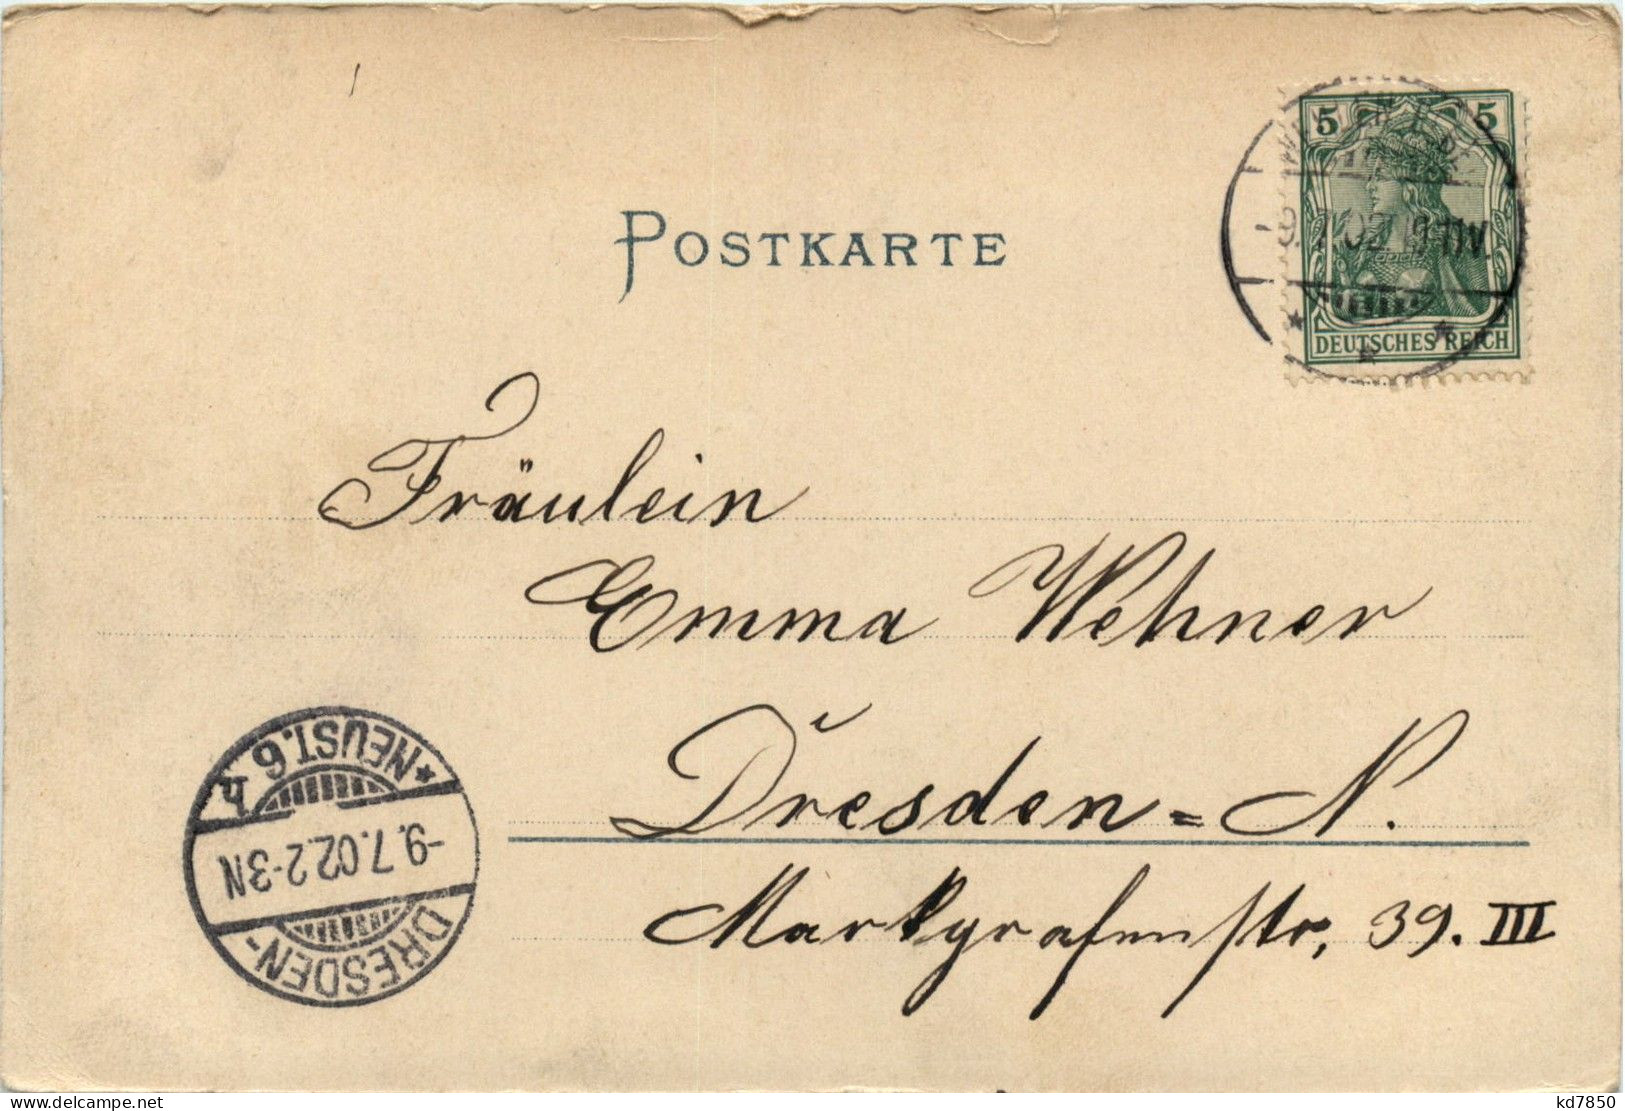 5 5
7.02. 9-11V.
DEUTSCHES REICH
POSTKARTE
Fräulein
Emma Wehner
Dresden=N.
Markgrafenstr, 39. III
*NEUST.6 h
-9.7.02.2-3N
DRESDEN-
kd7850